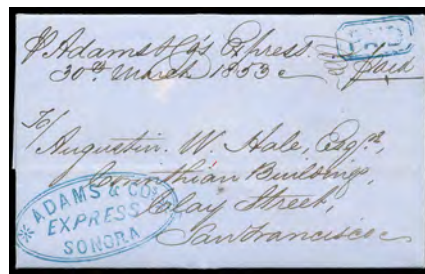 Adams & Co's Express.
30th March 1853
paid
PAID
To/
Augustin. W. Hale, Esqre,
Corinthian Buildings,
Clay Street,
San Francisco
ADAMS & CO'S
EXPRESS
SONORA